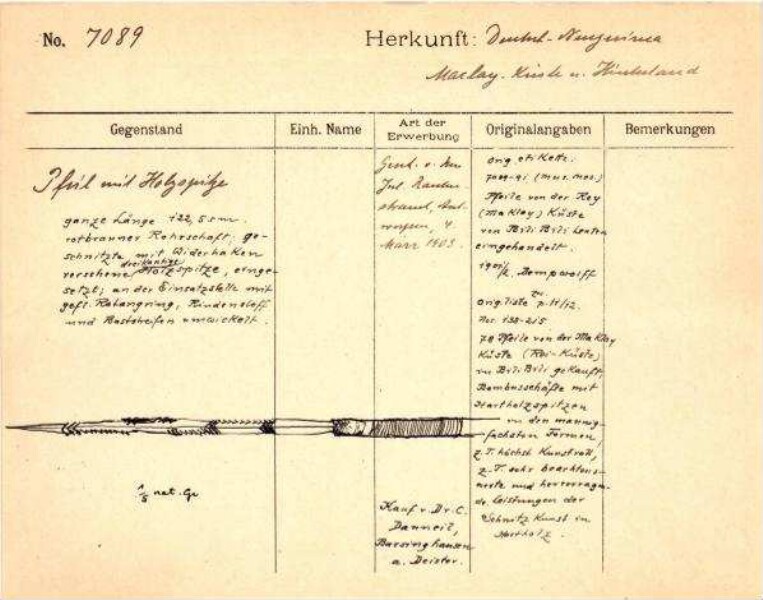 No. 7089
Herkunft: Deutsch-Neuguinea
Maclay-Küste u. Hinterland
Gegenstand
Einh. Name
Art der Erwerbung
Originalangaben
Bemerkungen
Pfeil mit Holzspitze
ganze Länge 122,5 cm.
rotbrauner Rohrschaft; ge-
schnitzte mit Widerhaken
versehene dreikantige Holzspitze, einge-
setzt; an der Einsatzstelle mit
gefl. Rotangring, Rindenstoff
und Baststreifen umwickelt.
1/5 nat. Gr.
Gesch. v. Hn
Jul. Rauten-
strauch, Ant-
werpen, 4.
März 1903.
Kauf v. Dr. C.
Danneil,
Barsinghausen
a. Deister.
Orig. etikette.
7089-91 (mus. mos.)
Pfeile von der Rey
(Maklay) Küste
von Bili Bili leuten
eingehandelt.
Dempwolff
Orig. liste
No. 138-215
78 Pfeile von der Maklay
Küste (Rai-Küste)
in Bili Bili gekauft;
Bambusschäfte mit
Hartholzspitzen
in den mannig-
fachsten Formen,
z. T. höchst kunstvoll,
z. T. sehr beachtens-
werte und hervorragen-
de Leistungen der
Schnitz Kunst in
Hartholz.